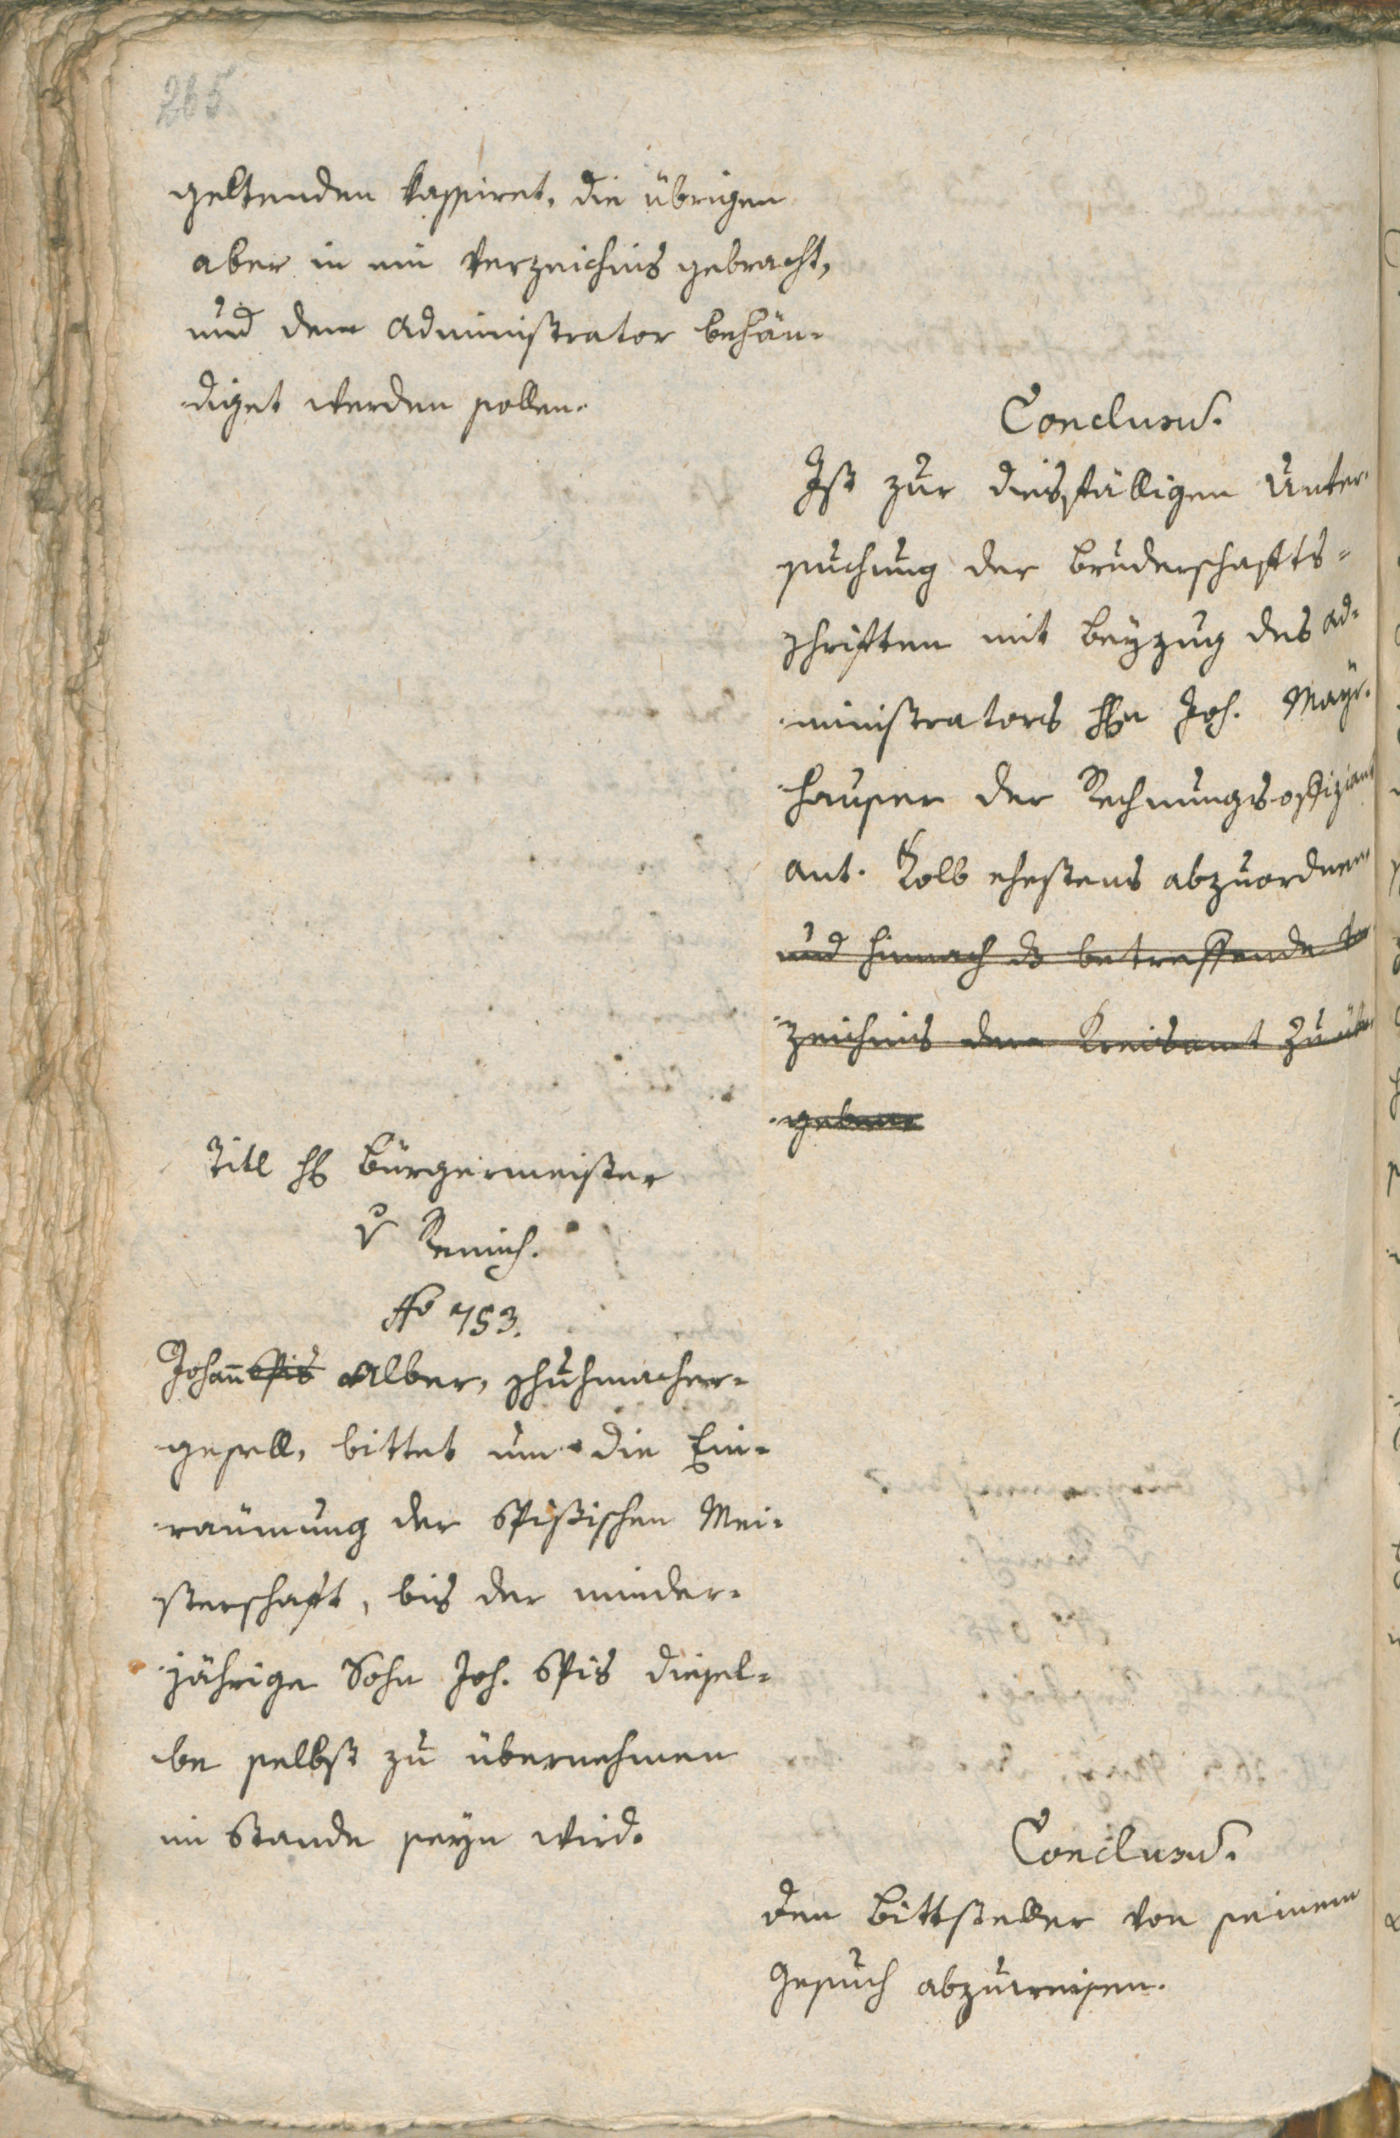 265
geltenden kassiret, die übrigen
aber in ein Verzeichnis gebracht,
und dem Administrator behän-
diget werden sollen.
Conclusum.
Ist zur diesfälligen Unter-
suchung der Bruderschafts-
schriften mit Beyzug des Ad-
ministrators Hn Joh. Mayr-
hauser der Rechnungsoffiziant
Ant. Kolb ehestens abzuordnen
und hienach das betreffende Ver
zeichnis dem Kreisamt zu über
geben
Titl H Bürgermeister
v Remich.
No 753.
Johann Spis Alber, Schuhmacher-
gesell, bittet um die Ein-
räumung der Spißischen Mei-
sterschaft, bis der minder-
jährige Sohn Joh. Spis diesel-
be selbst zu übernehmen
im Stande seyn wird.
Conclusum.
Den Bittsteller von seinem
Gesuch abzuweisen.